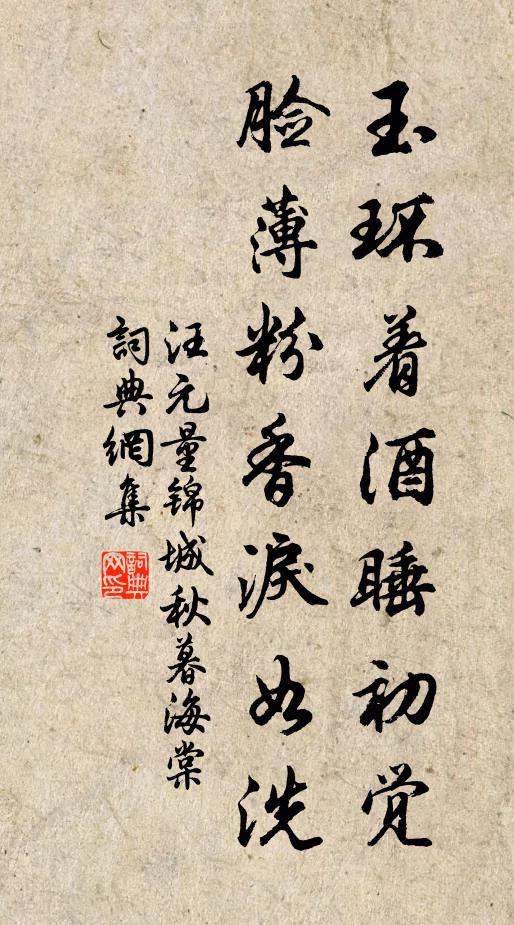 玉环着酒睡初觉
脸薄粉香淚如洗
汪元量锦城秋暮海棠
詞典網集
詞典网印